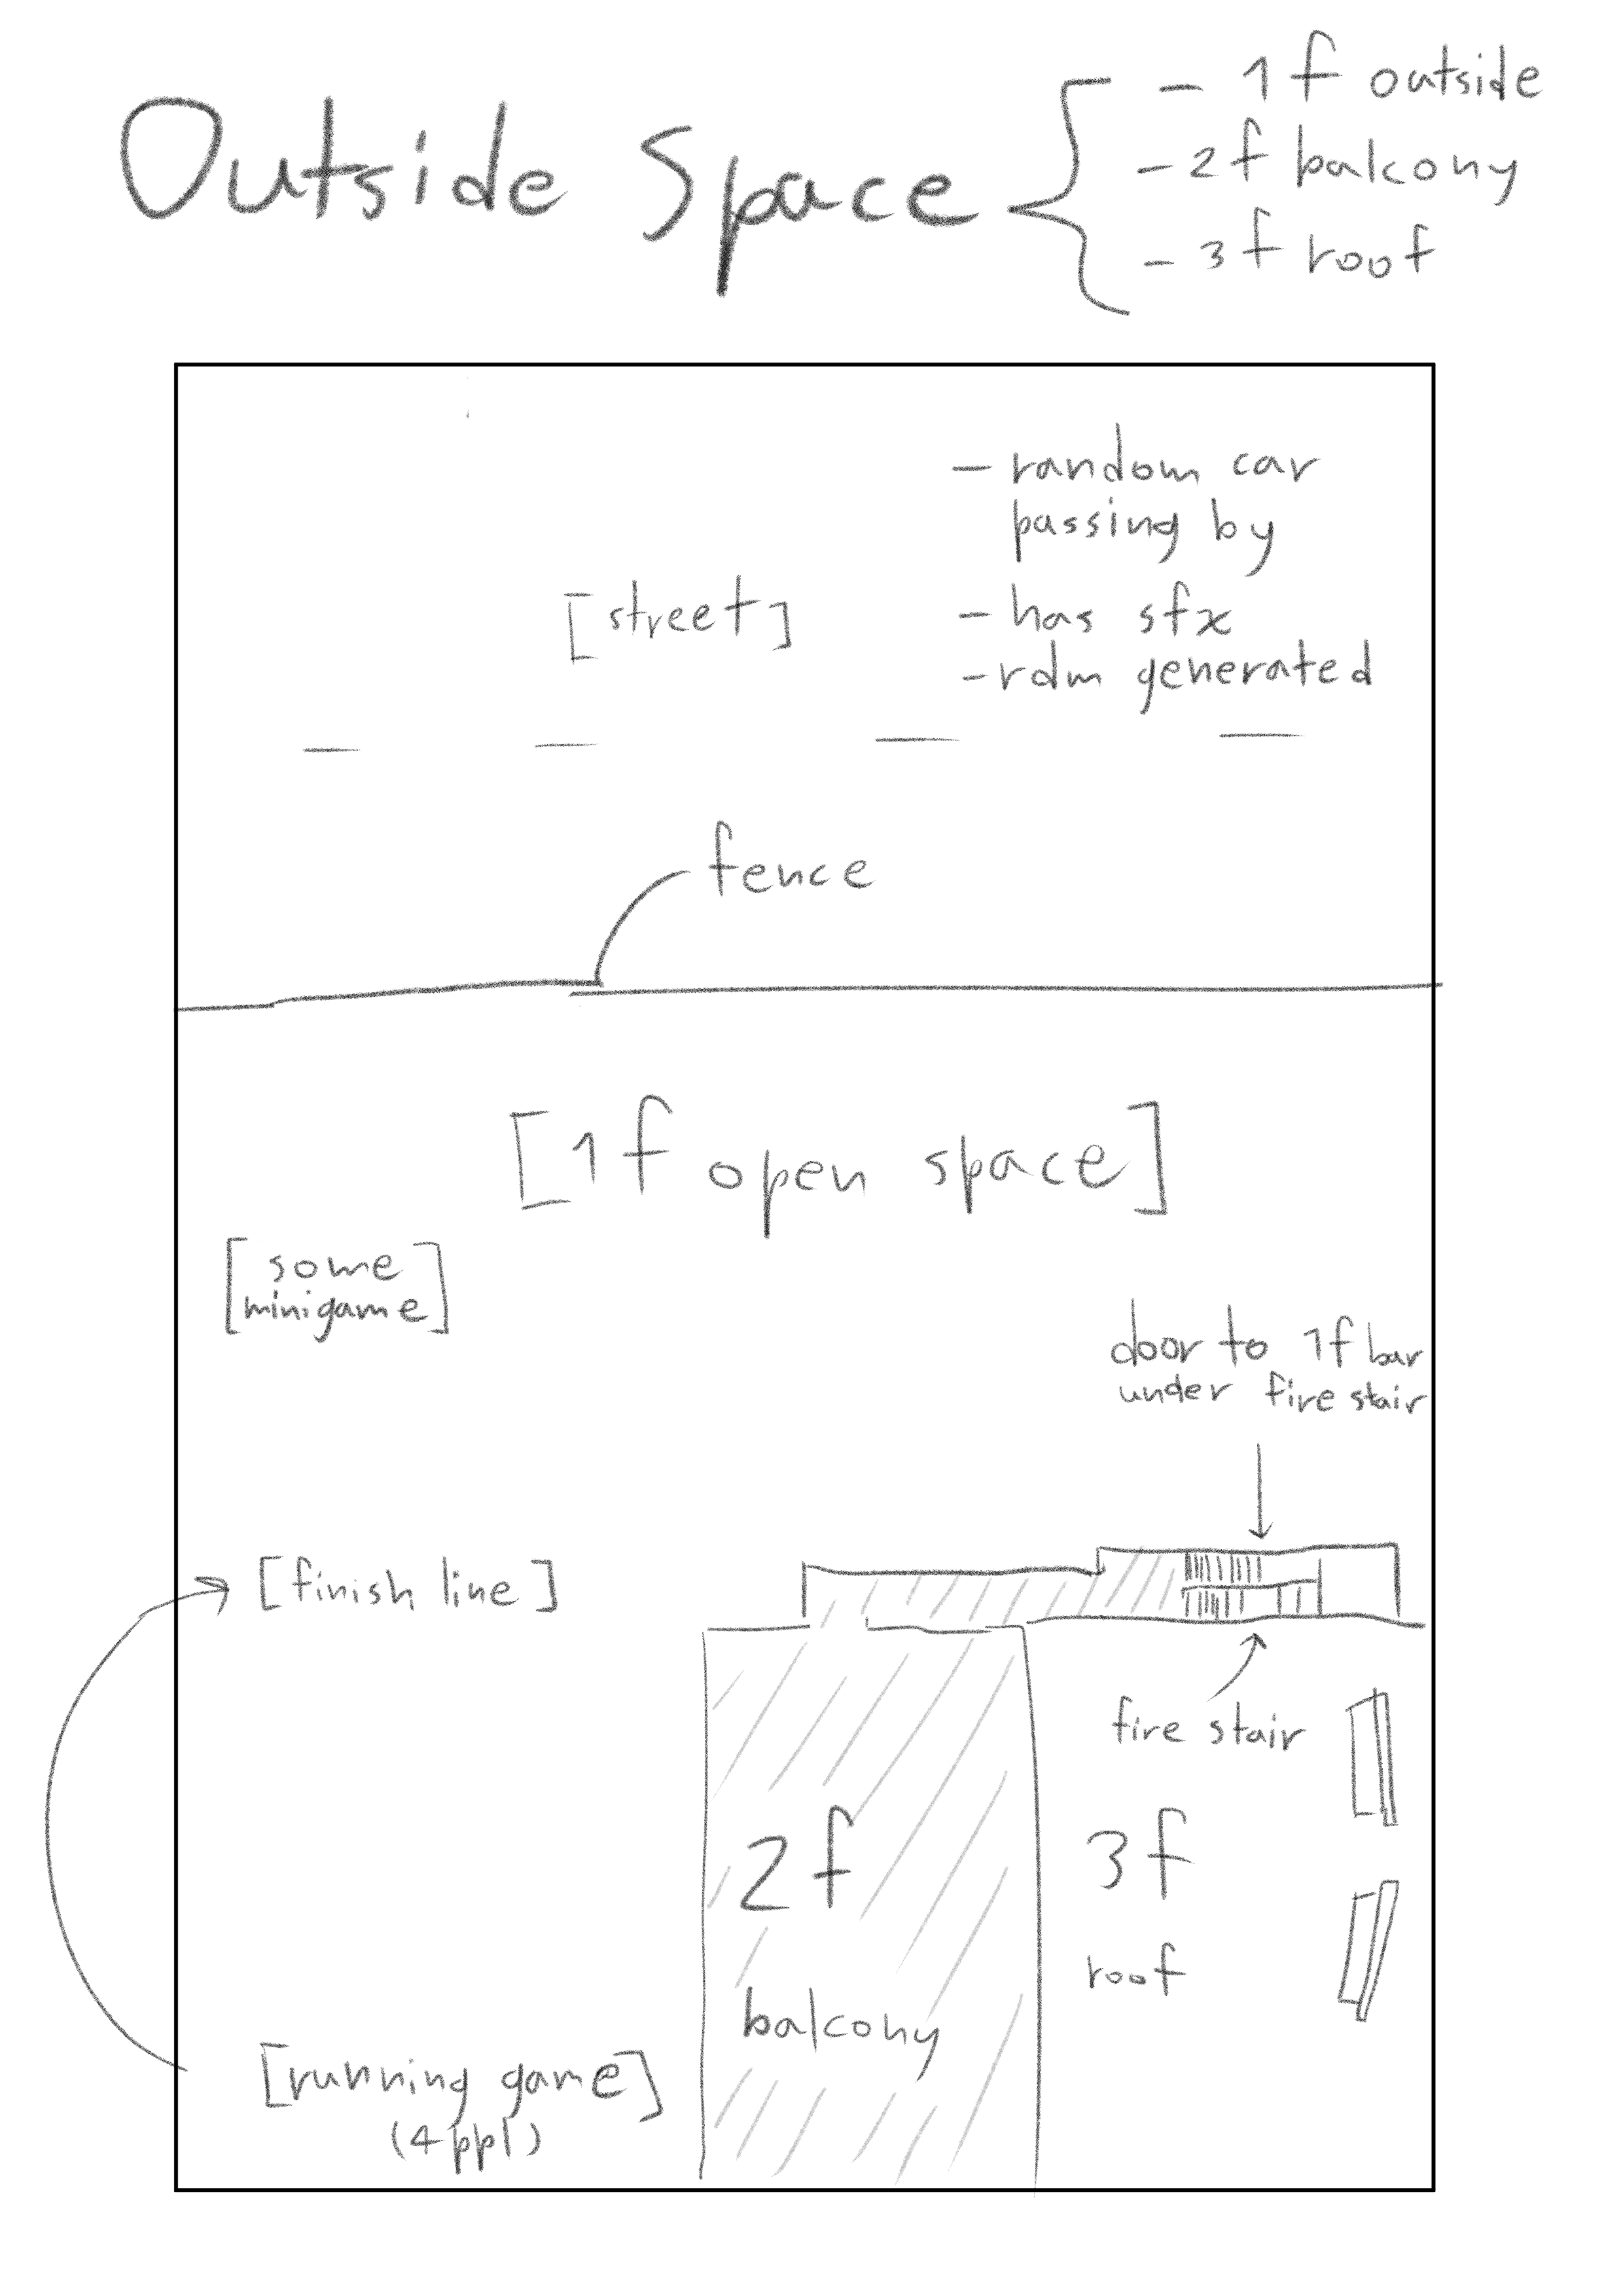 Outside Space
- 1f outside
- 2f balcony
- 3f roof
- random car
passing by
[street]
- has sfx
- rdm generated
fence
[1f open space]
[some
minigame]
door to 1f bar
under fire stair
[finish line]
fire stair
2f
balcony
3f
roof
[running game]
(4 ppl)